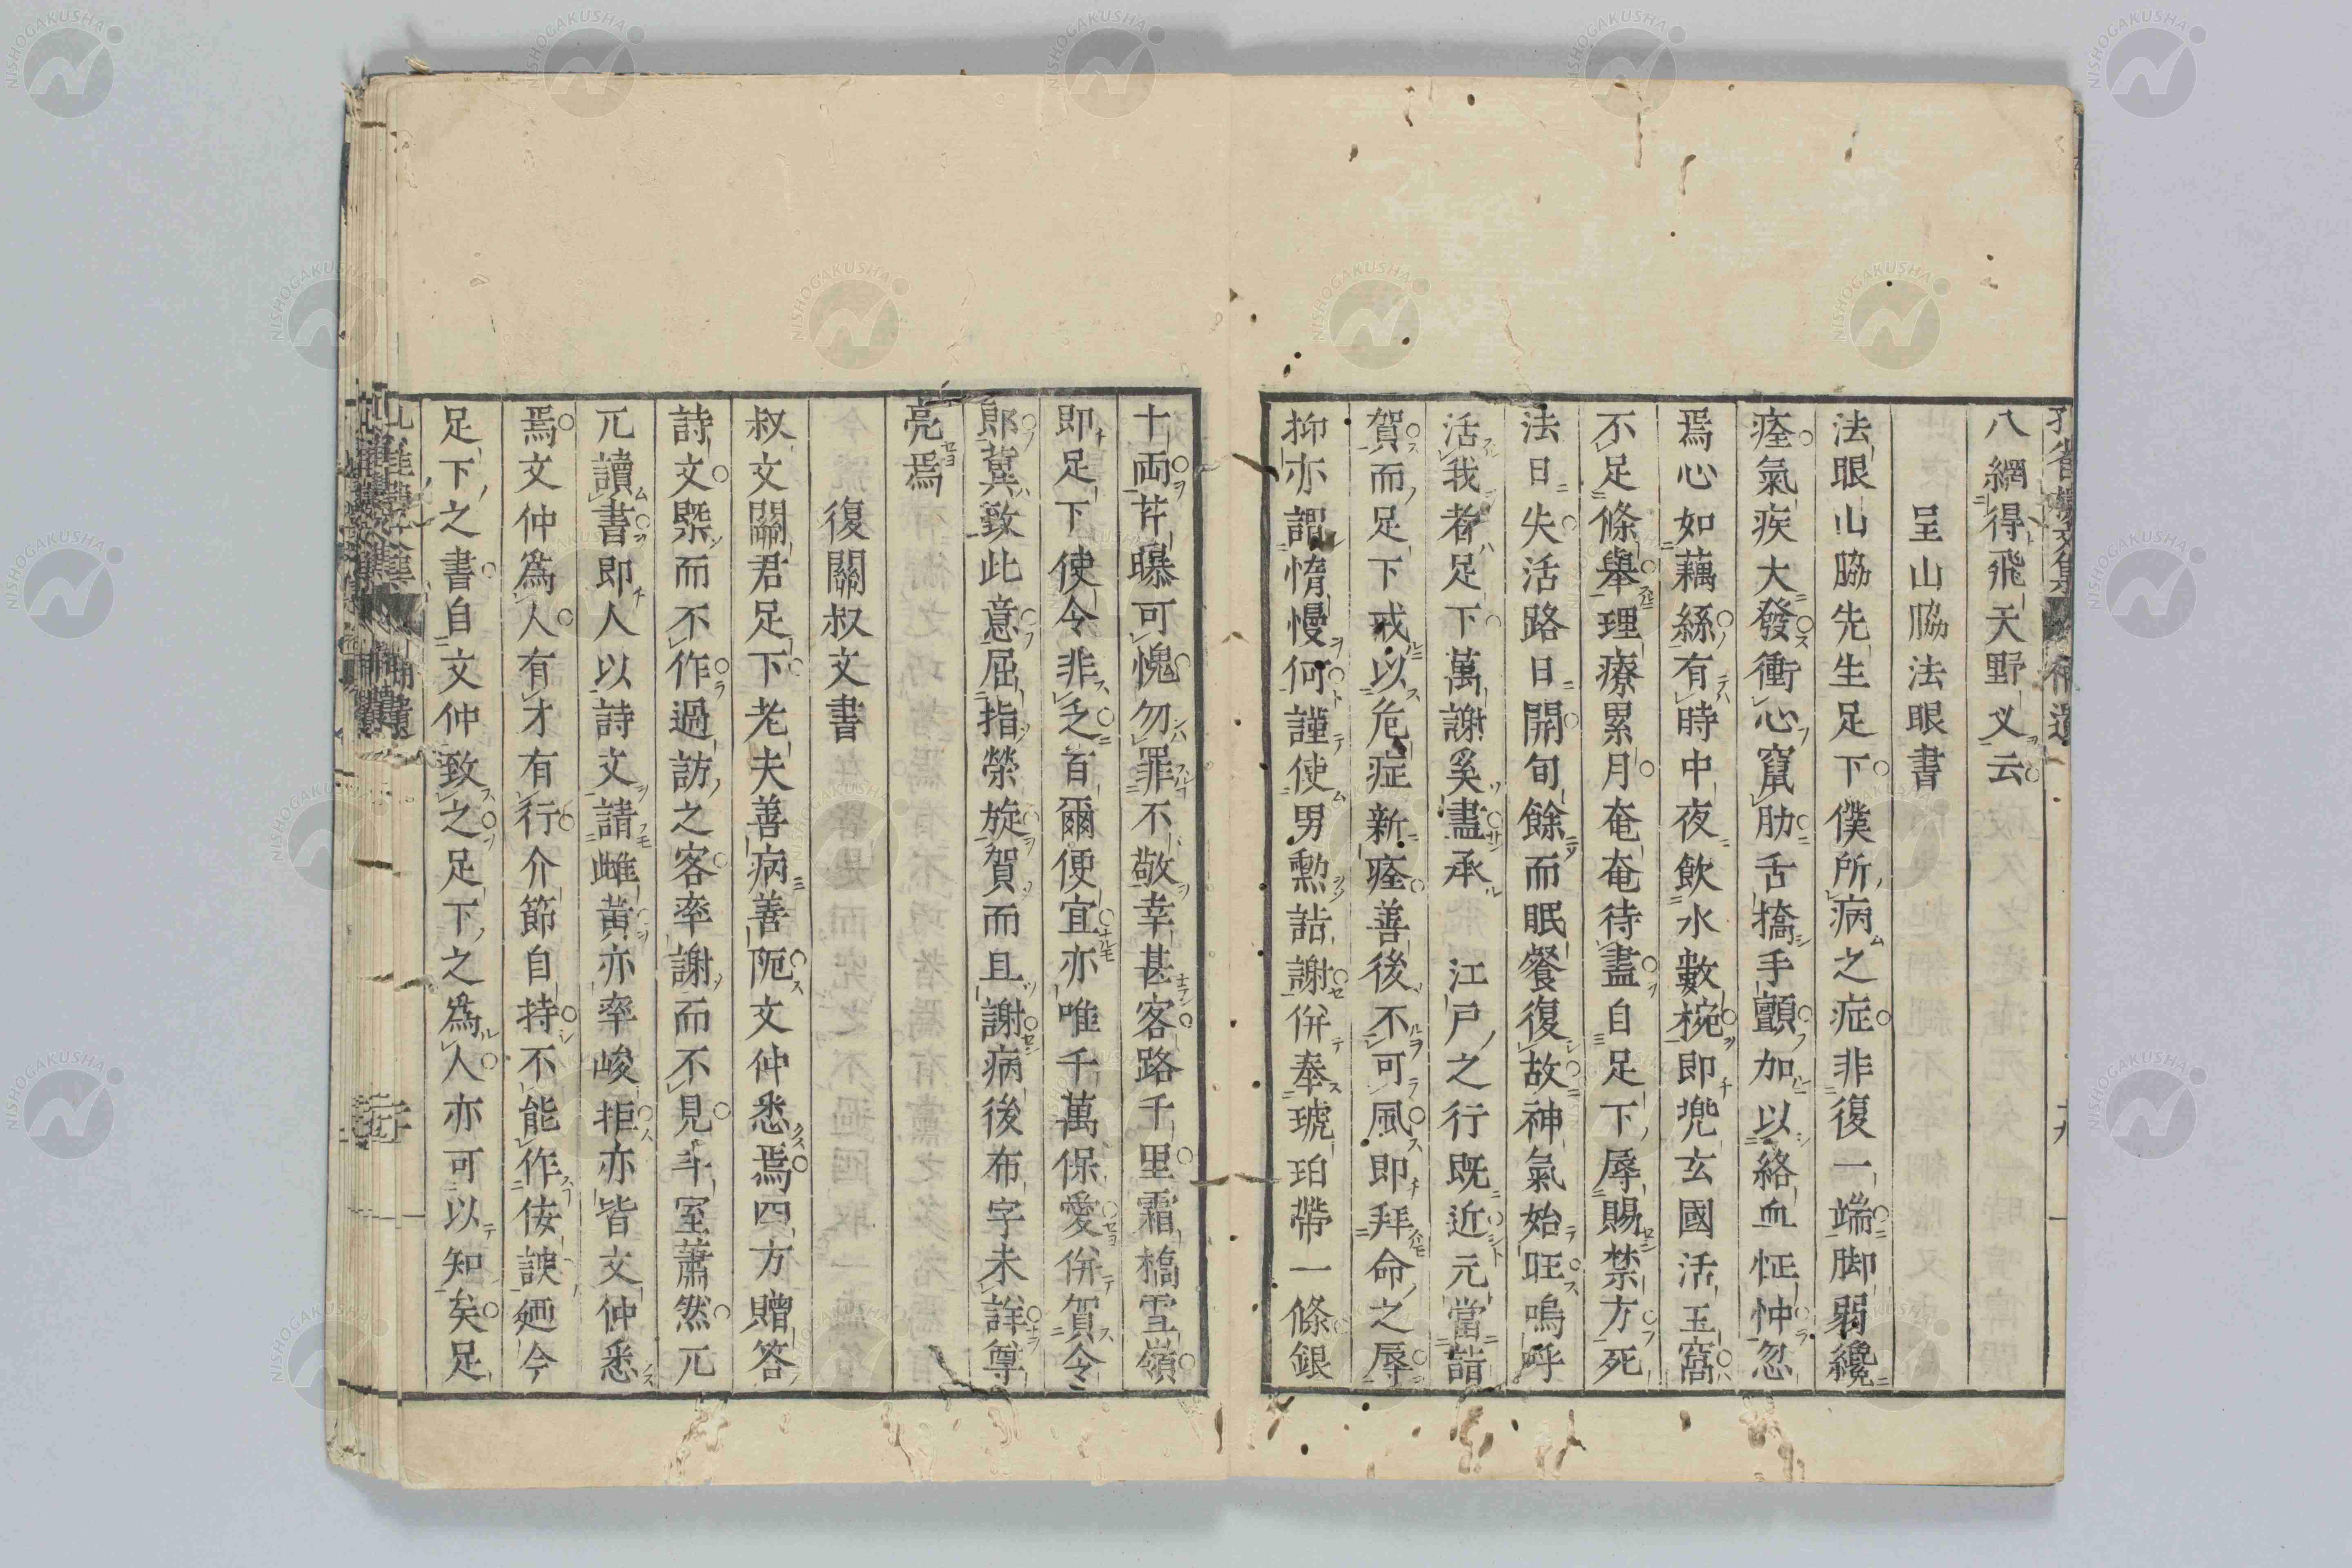 八網得飛天野乂云
呈山脇法眼書
法眼山脇先生足下僕所病之症非復一端脚弱纔
痊氣疾大發衝心竄肋舌撟手顫加以絡血怔忡忽
焉心如藕絲有時中夜飲水數椀即兜玄國活玉窩
不足條舉理療累月奄奄待盡自足下辱賜禁方死
法日失活路日開旬餘而眠餐復故神氣始旺嗚呼
活我者足下萬謝奚盡承 江戸之行既近元當詣
賀而足下戒以危症新痊善後不可風即拜命之辱
抑亦謂惰慢何謹使男勲詣謝併奉琥珀帶一條銀
十両芹曝可愧勿罪不敬幸甚客路千里霜橋雪嶺
即足下使令非乏首爾便宜亦唯千萬保愛併賀令
郎冀致此意屈指榮旋賀而且謝病後布字未詳尊
亮焉
復關叔文書
叔文關君足下老夫善病善阨文仲悉焉四方贈答
詩文槩而不作過訪之客率謝而不見斗室蕭然元
兀讀書即人以詩文請雌黄亦率峻拒亦皆文仲悉
焉文仲爲人有才有行介節自持不能作侫諛廼今
足下之書自文仲致之足下之爲人亦可以知矣足